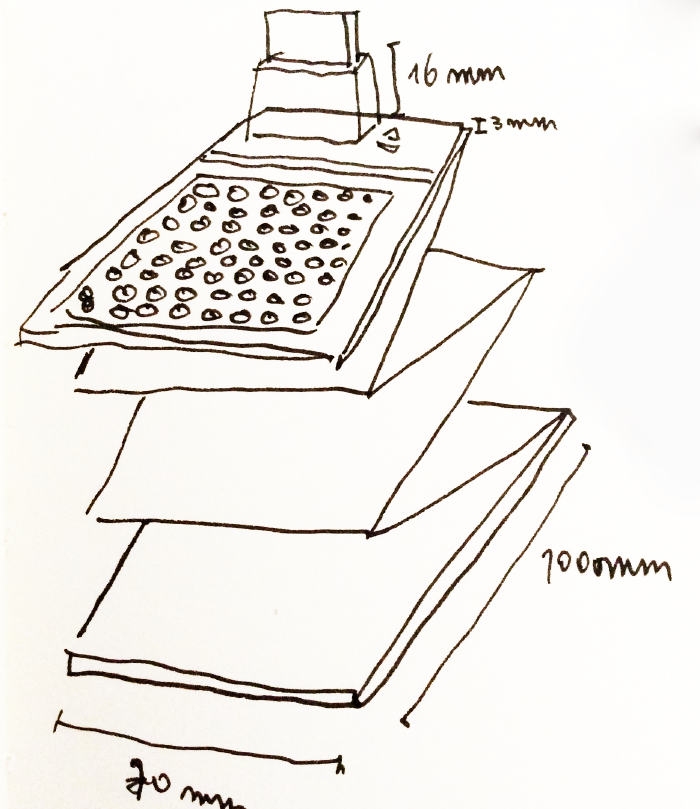 16 mm
3 mm
1000mm
70 mm